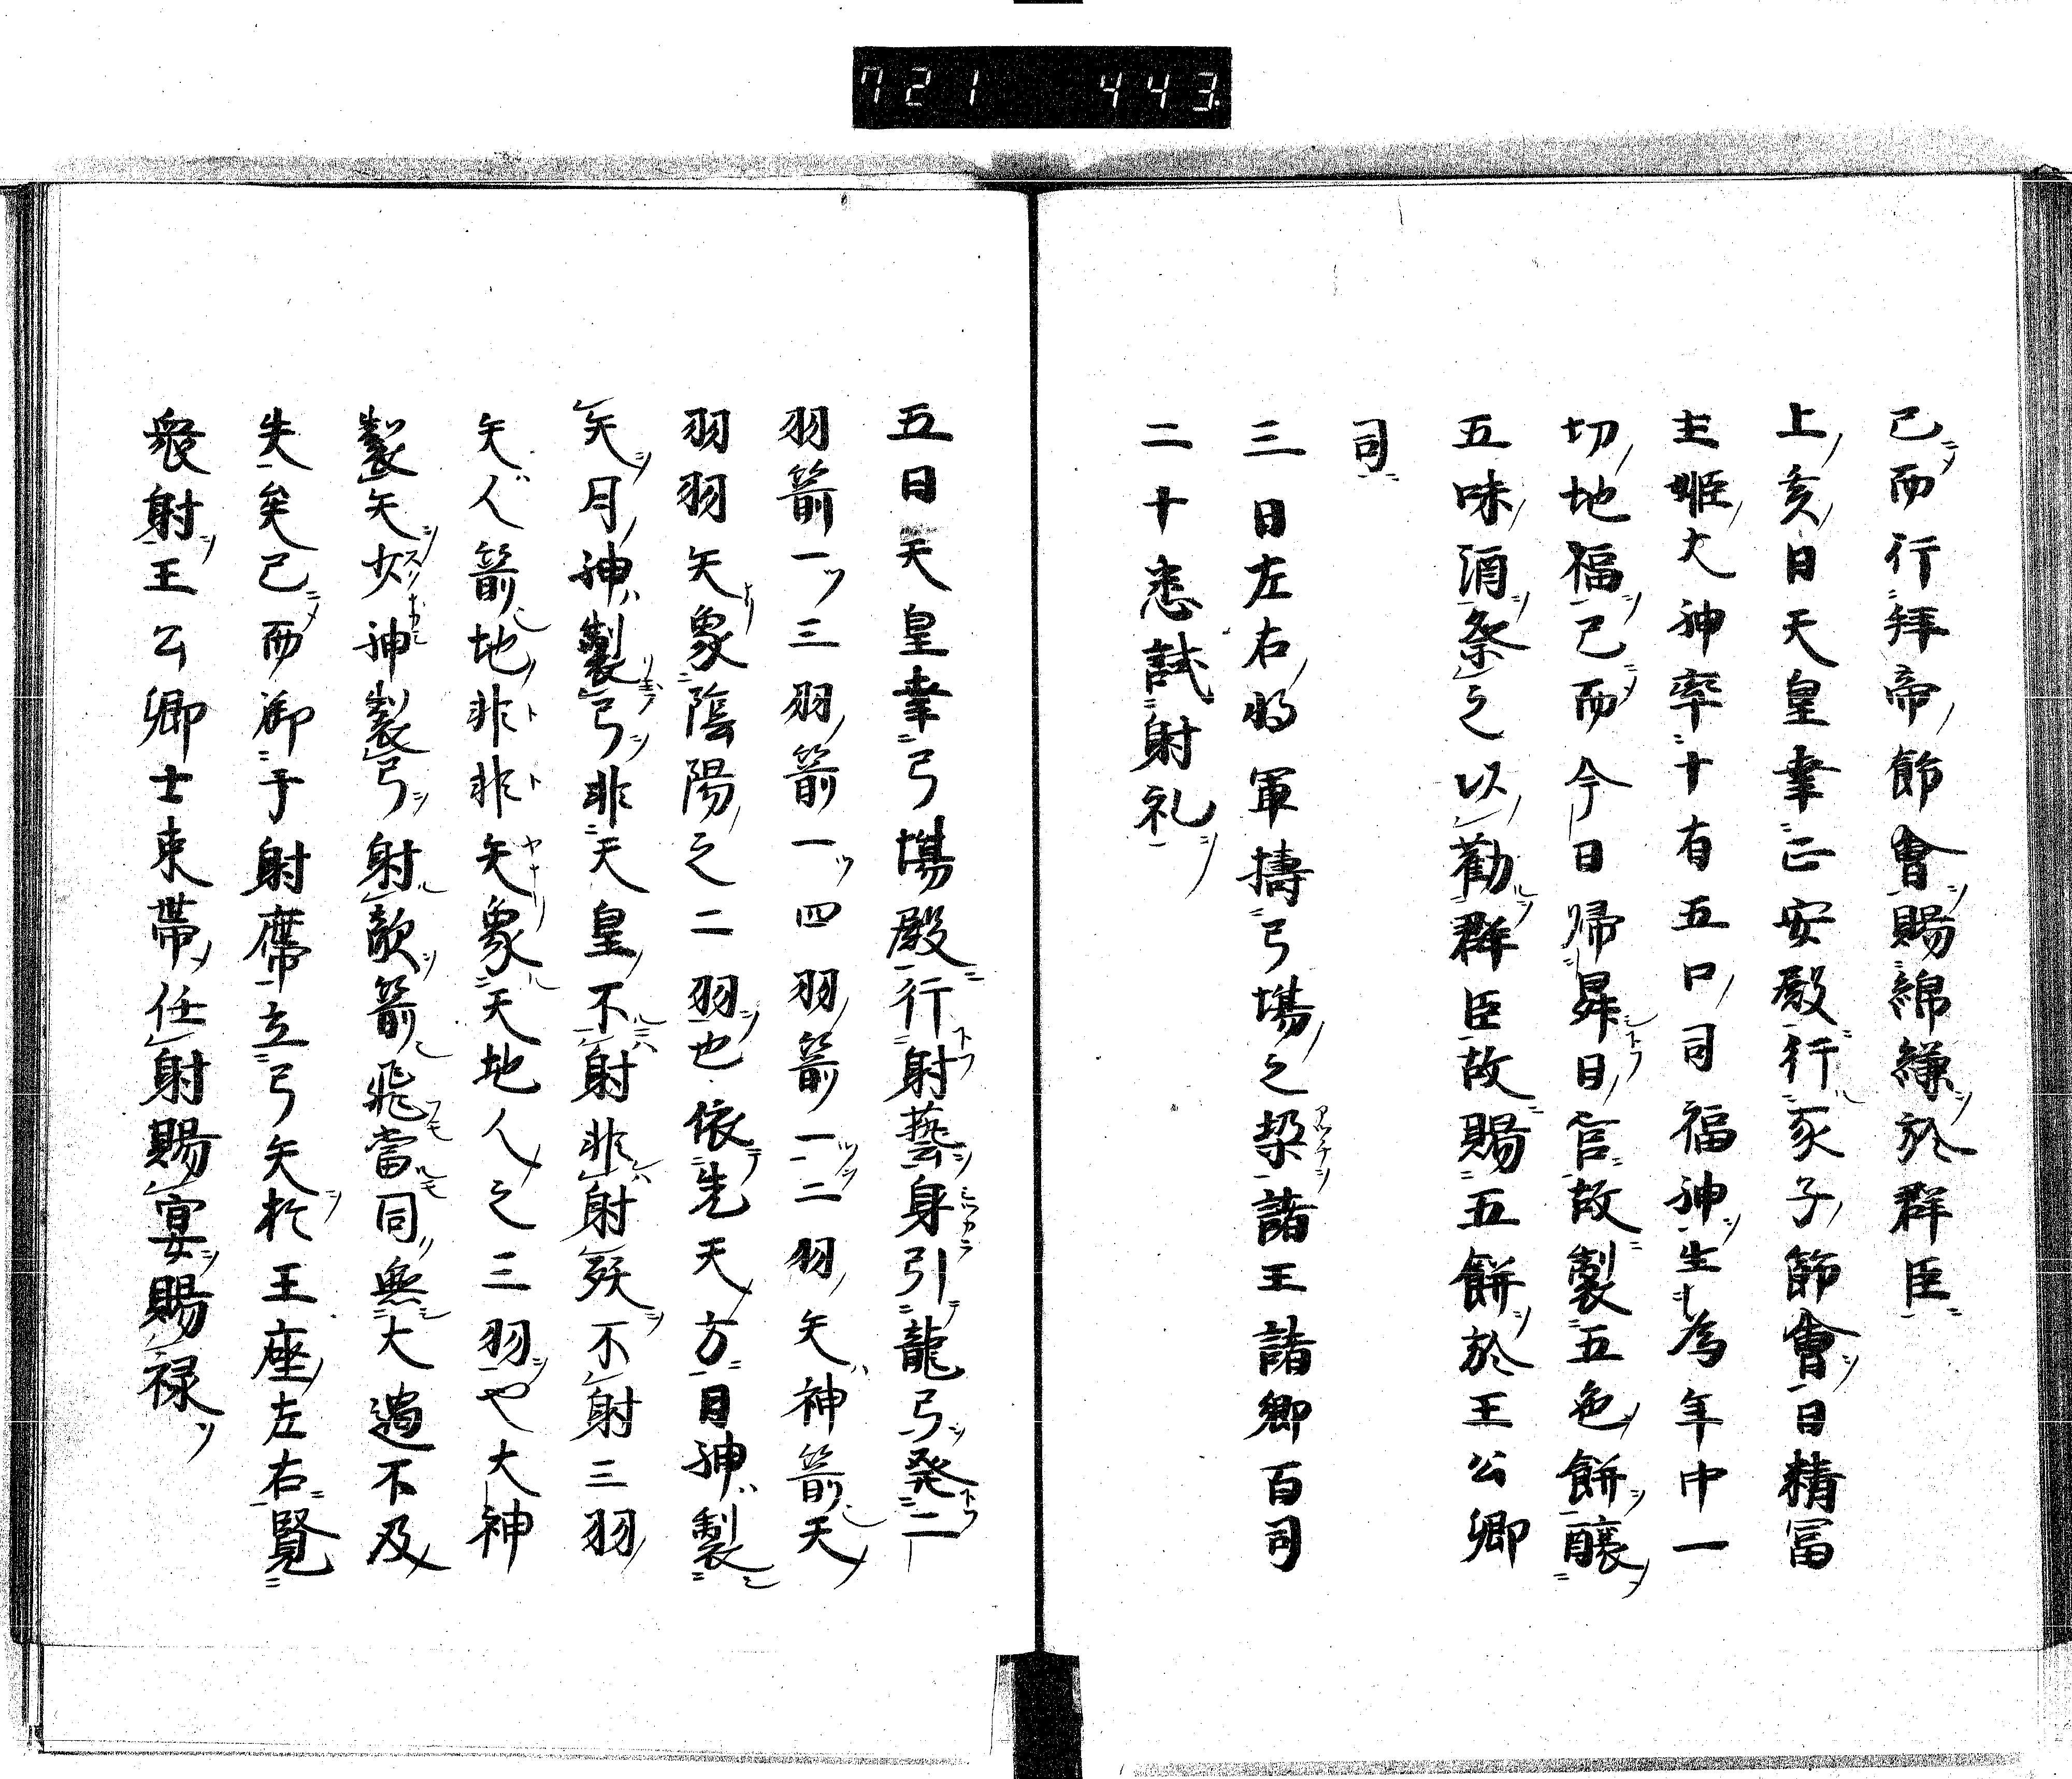 721 443
已而行拜帝節會賜綿縑於群臣
上亥日天皇幸正安殿行豕子節會日精冨
主姬大神率十有五口司福神生為年中一
切地福已而今日帰昇日官故製五色餅釀
五味酒祭之以勸群臣故賜五餅於王公卿
司
三日左右將軍擣弓場之埒諸王諸卿百司
二十悉試射礼
五日天皇幸弓場殿行射藝身引龍弓発二
羽箭一ツ三羽箭一ツ四羽箭一ツ二羽矢神箭天
羽羽矢象陰陽之二羽也依先天方日神製
矢月神製弓非天皇不射非射殀不射三羽
矢人箭地非非矢象天地人之三羽也大神
製矢次神製弓射敵箭飛當同無大過不及
失矣已而御于射席立弓矢於王座左右覧
衆射王公卿士束帶任射賜宴賜禄